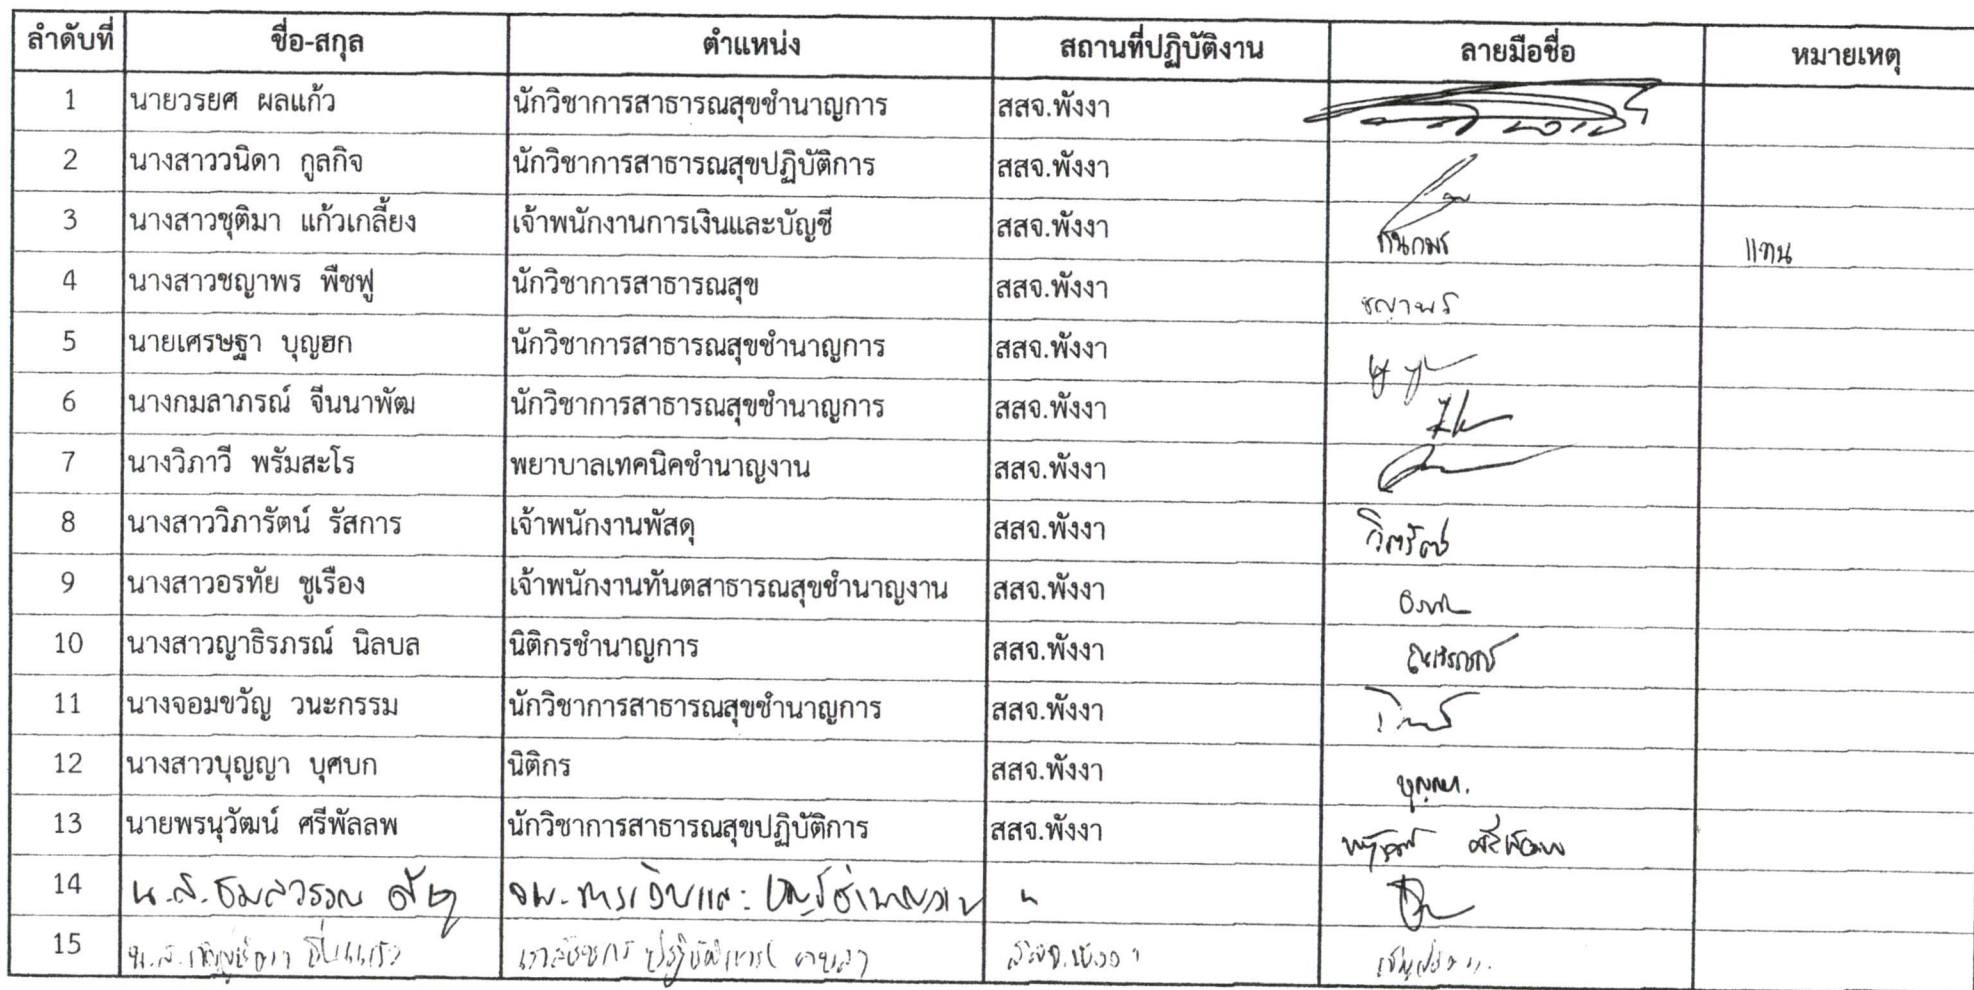 ลำดับที่ ชื่อ-สกุล ตำแหน่ง สถานที่ปฏิบัติงาน ลายมือชื่อ หมายเหตุ
1 นายวรยศ ผลแก้ว นักวิชาการสาธารณสุขชำนาญการ สสจ.พังงา
2 นางสาววนิดา กูลกิจ นักวิชาการสาธารณสุขปฏิบัติการ สสจ.พังงา
3 นางสาวชุติมา แก้วเกลี้ยง เจ้าพนักงานการเงินและบัญชี สสจ.พังงา แทน
4 นางสาวชญาพร พืชฟู นักวิชาการสาธารณสุข สสจ.พังงา ชญาพร
5 นายเศรษฐา บุญฮก นักวิชาการสาธารณสุขชำนาญการ สสจ.พังงา
6 นางกมลาภรณ์ จีนนาพัฒ นักวิชาการสาธารณสุขชำนาญการ สสจ.พังงา
7 นางวิภาวี พรัมสะโร พยาบาลเทคนิคชำนาญงาน สสจ.พังงา
8 นางสาววิภารัตน์ รัสการ เจ้าพนักงานพัสดุ สสจ.พังงา
9 นางสาวอรทัย ชูเรือง เจ้าพนักงานทันตสาธารณสุขชำนาญงาน สสจ.พังงา
10 นางสาวญาธิรภรณ์ นิลบล นิติกรชำนาญการ สสจ.พังงา
11 นางจอมขวัญ วนะกรรม นักวิชาการสาธารณสุขชำนาญการ สสจ.พังงา
12 นางสาวบุญญา บุศบก นิติกร สสจ.พังงา บุญญา.
13 นายพรนุวัฒน์ ศรีพัลลพ นักวิชาการสาธารณสุขปฏิบัติการ สสจ.พังงา
14 น.ส. จพ.การเงินและบัญชีชำนาญงาน "
15 น.ส. เภสัชกรปฏิบัติการ สสจ.พังงา